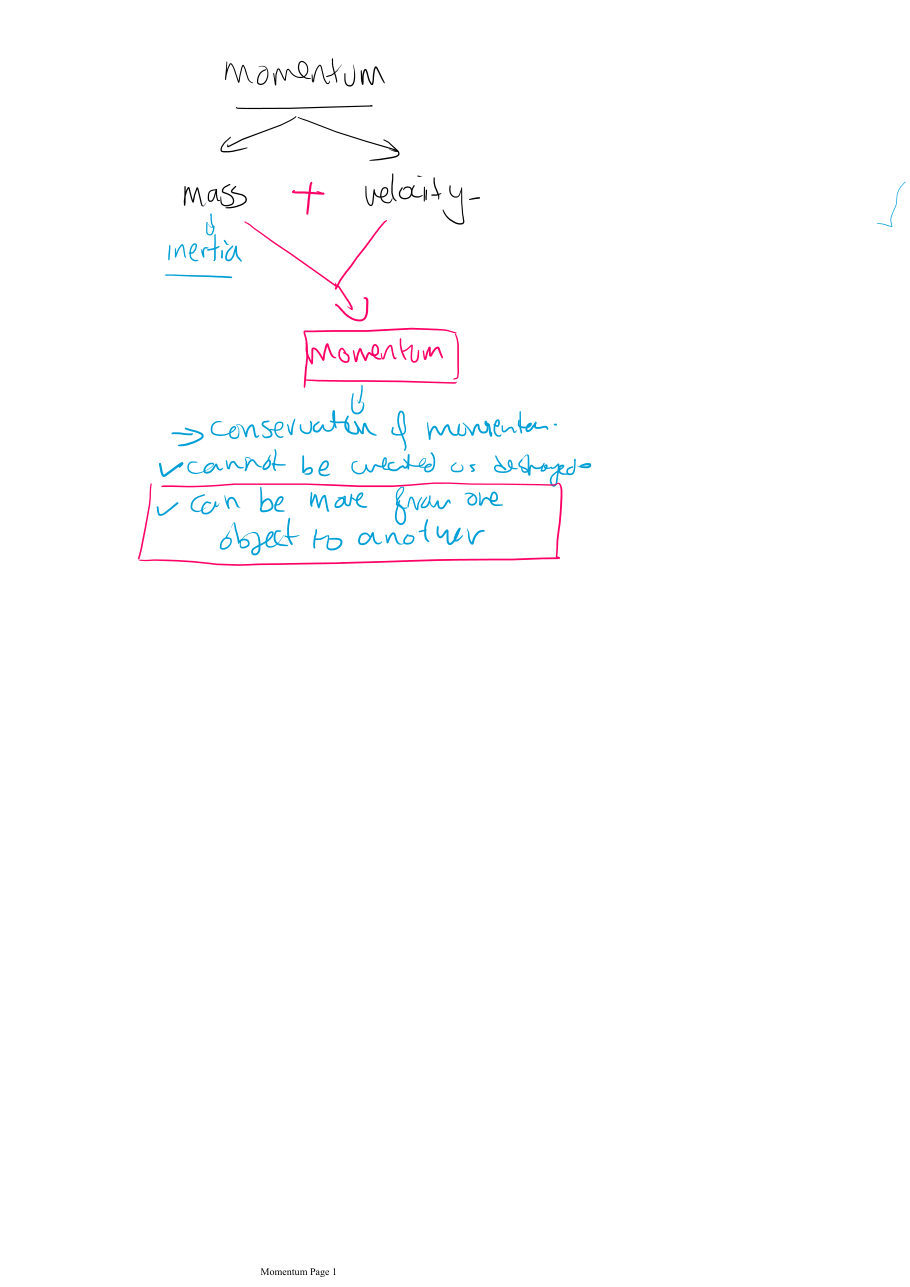 momentum
mass + velocity
inertia
momentum
⇒ conservation of momentum.
✓ cannot be created or destroyed
✓ can be move from one
object to another
Momentum Page 1